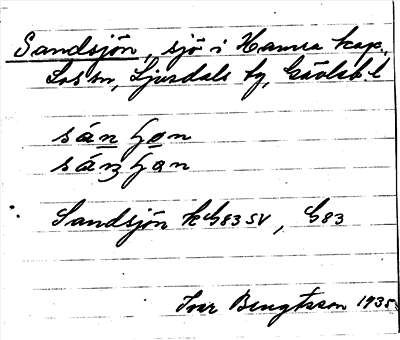 Sandsjön, sjö i Hamra kap.,
Los sn, Ljusdals tg, Gävleb. l
Sandsjön k G83 SV, G83
Ivar Bengtsson 1935